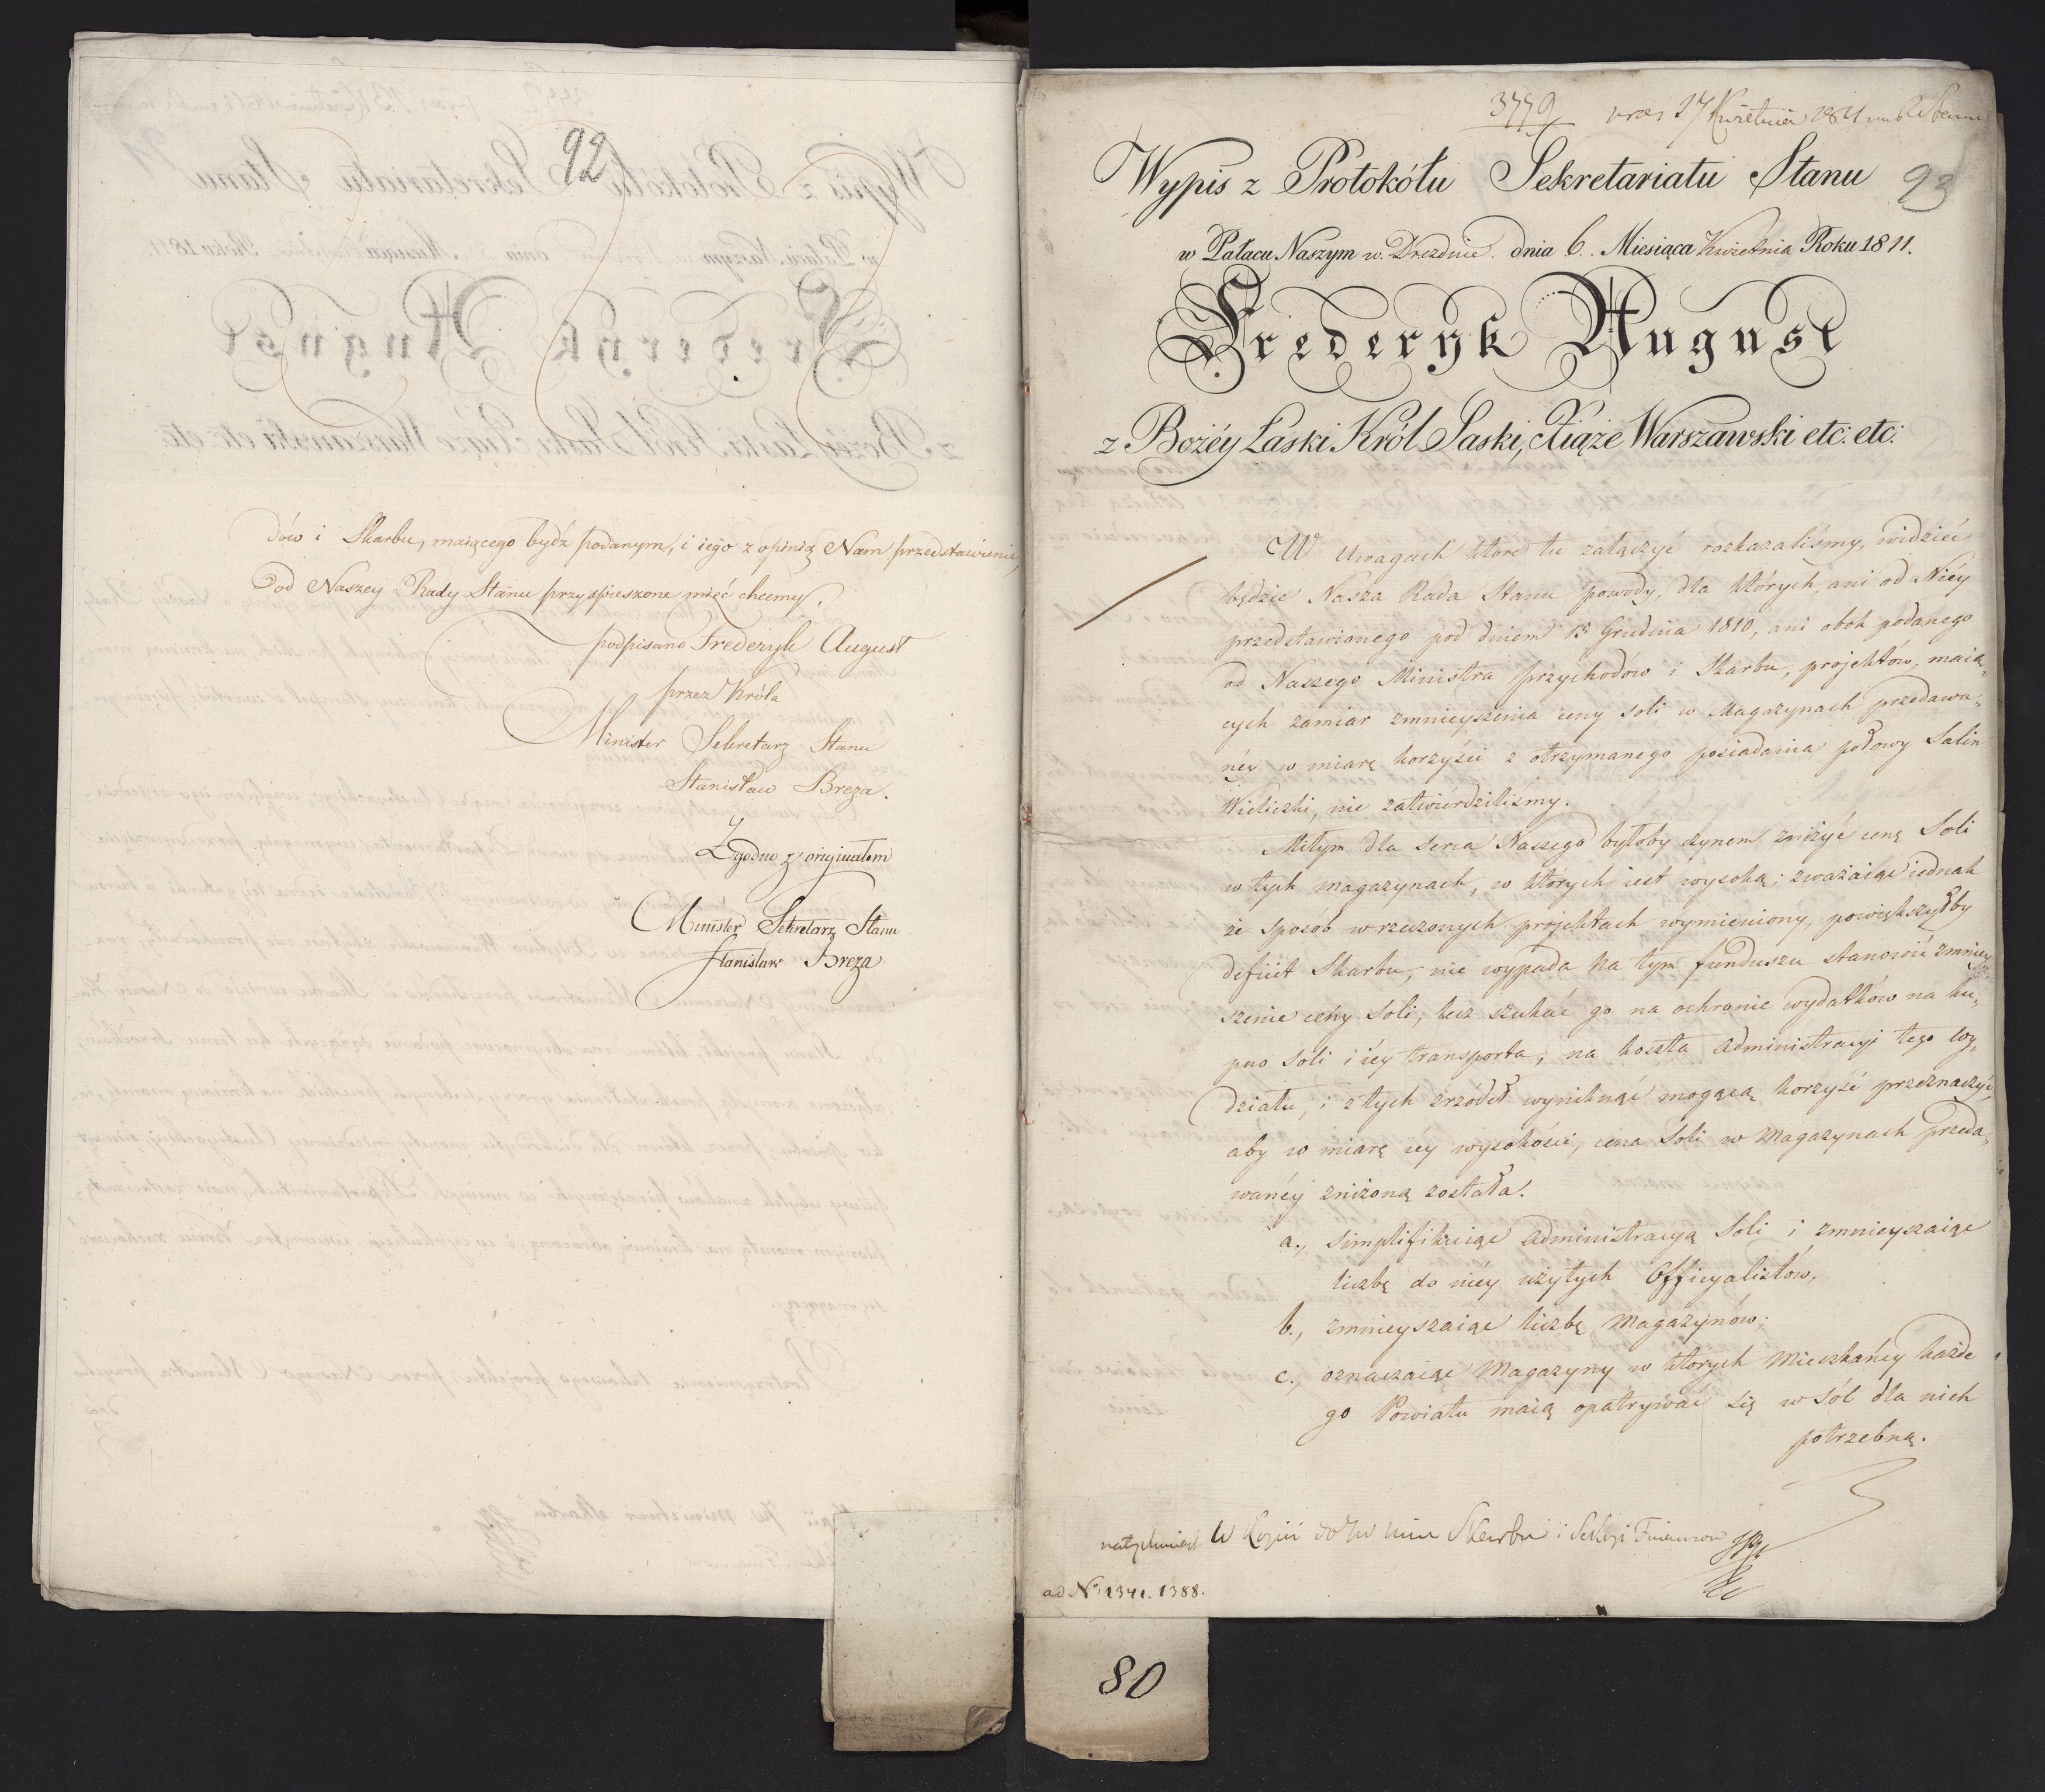 92
dów i Skarbu, maiącego bydź podanym, i iego z opinią Nam przedstawienie,
od Naszey Rady Stanu przyspieszone mieć chcemy.
podpisano Frederyk August
przez Króla
Minister Sekretarz Stanu
Stanisław Breza.
Zgodno z originałem
Minister Sekretarz Stanu
Stanisław Breza
3779 17 Kwietnia 1811
Wypis z Protokółu Sekretariatu Stanu 93
w Pałacu Naszym w Dreznie dnia 6. Miesiąca Kwietnia Roku 1811.
Frederyk August
z Bożéy Łaski Król Saski, Xiąże Warszawski etc: etc:
W Uwagach które tu załączyć rozkazaliśmy, widzieć
będzie Nasza Rada Stanu powody, dla których, ani od Niéy
przedstawionego pod dniem 13 Grudnia 1810, ani obok podanego
od Naszego Ministra Przychodów i Skarbu, projektów, maią„
cych zamiar zmnieyszenia ceny soli w Magazynach przedawa„
néy w miarę korzyści z otrzymanego posiadania połowy Salin
Wieliczki, nie zatwierdziliśmy.
Miłym dla Serca Naszego byłoby czynem zniżyć cenę Soli
w tych magazynach, w których iest wysoką; zważaiąc iednak
że sposób w rzeczonych projektach wymieniony, powiększyłby
deficit Skarbu, nie wypada na tym funduszu stanowić zmniey„
szenie ceny Soli, lecz szukać go na ochronie wydatków na ku„
pno Soli i iéy transporta, na koszta Administracyi tego Wy„
działu, i z tych źrzódeł wyniknąć mogącą korzyść przeznaczyć,
aby w miarę iéy wysokości, cena Soli w Magazynach przeda„
wanéy zniżoną została.
a., simplifikuiąc Administracyą Soli i zmnieyszaiąc
liczbę do niéy użytych Officyalistów,
b., zmnieyszaiąc liczbę Magazynów;
c., oznaczaiąc Magazyny w których Mieszkańcy każde
go Powiatu maią opatrywać się w Sól dla nich
potrzebną.
natychmiast W Kopii do JW Min Skarbu i Sekcyi Finansow
ad Nr 1341. 1388.
80